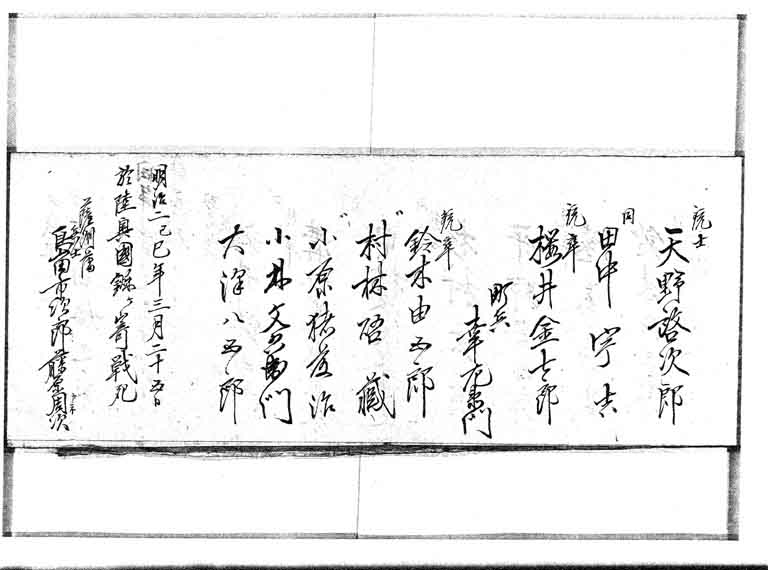 銃士
天野啓次郎
同
田中宇吉
銃卒
桜井金七郎
町兵
幸右衛門
銃卒
鈴木由五郎
〃
村林啓蔵
〃
小原猪友治
小林文右衛門
大澤八五郎
明治二己巳年三月二十五日
於陸奥國鍬ヶ嵜戦死
薩州藩
島田市次郎藤原周次